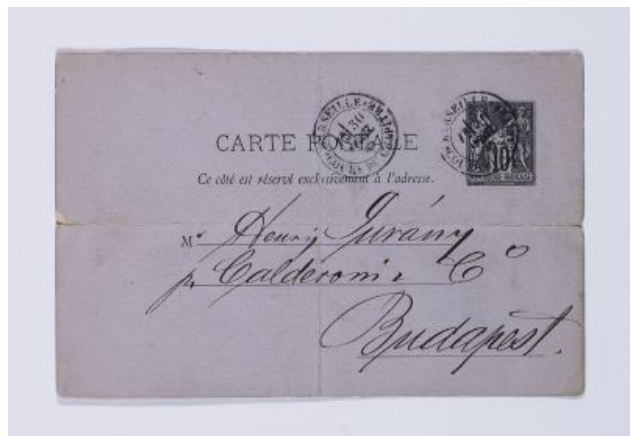 CARTE POSTALE
Ce côté est réservé exclusivement à l'adresse.
MARSEILLE
30
10
Mr Henry Jurány
pr Calderoni & Co
Budapest.